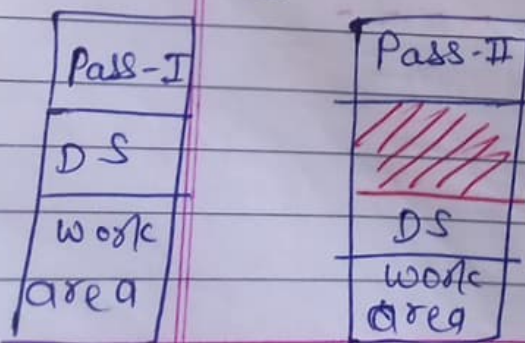 Pass-I
DS
work
area
Pass-II
DS
work
area